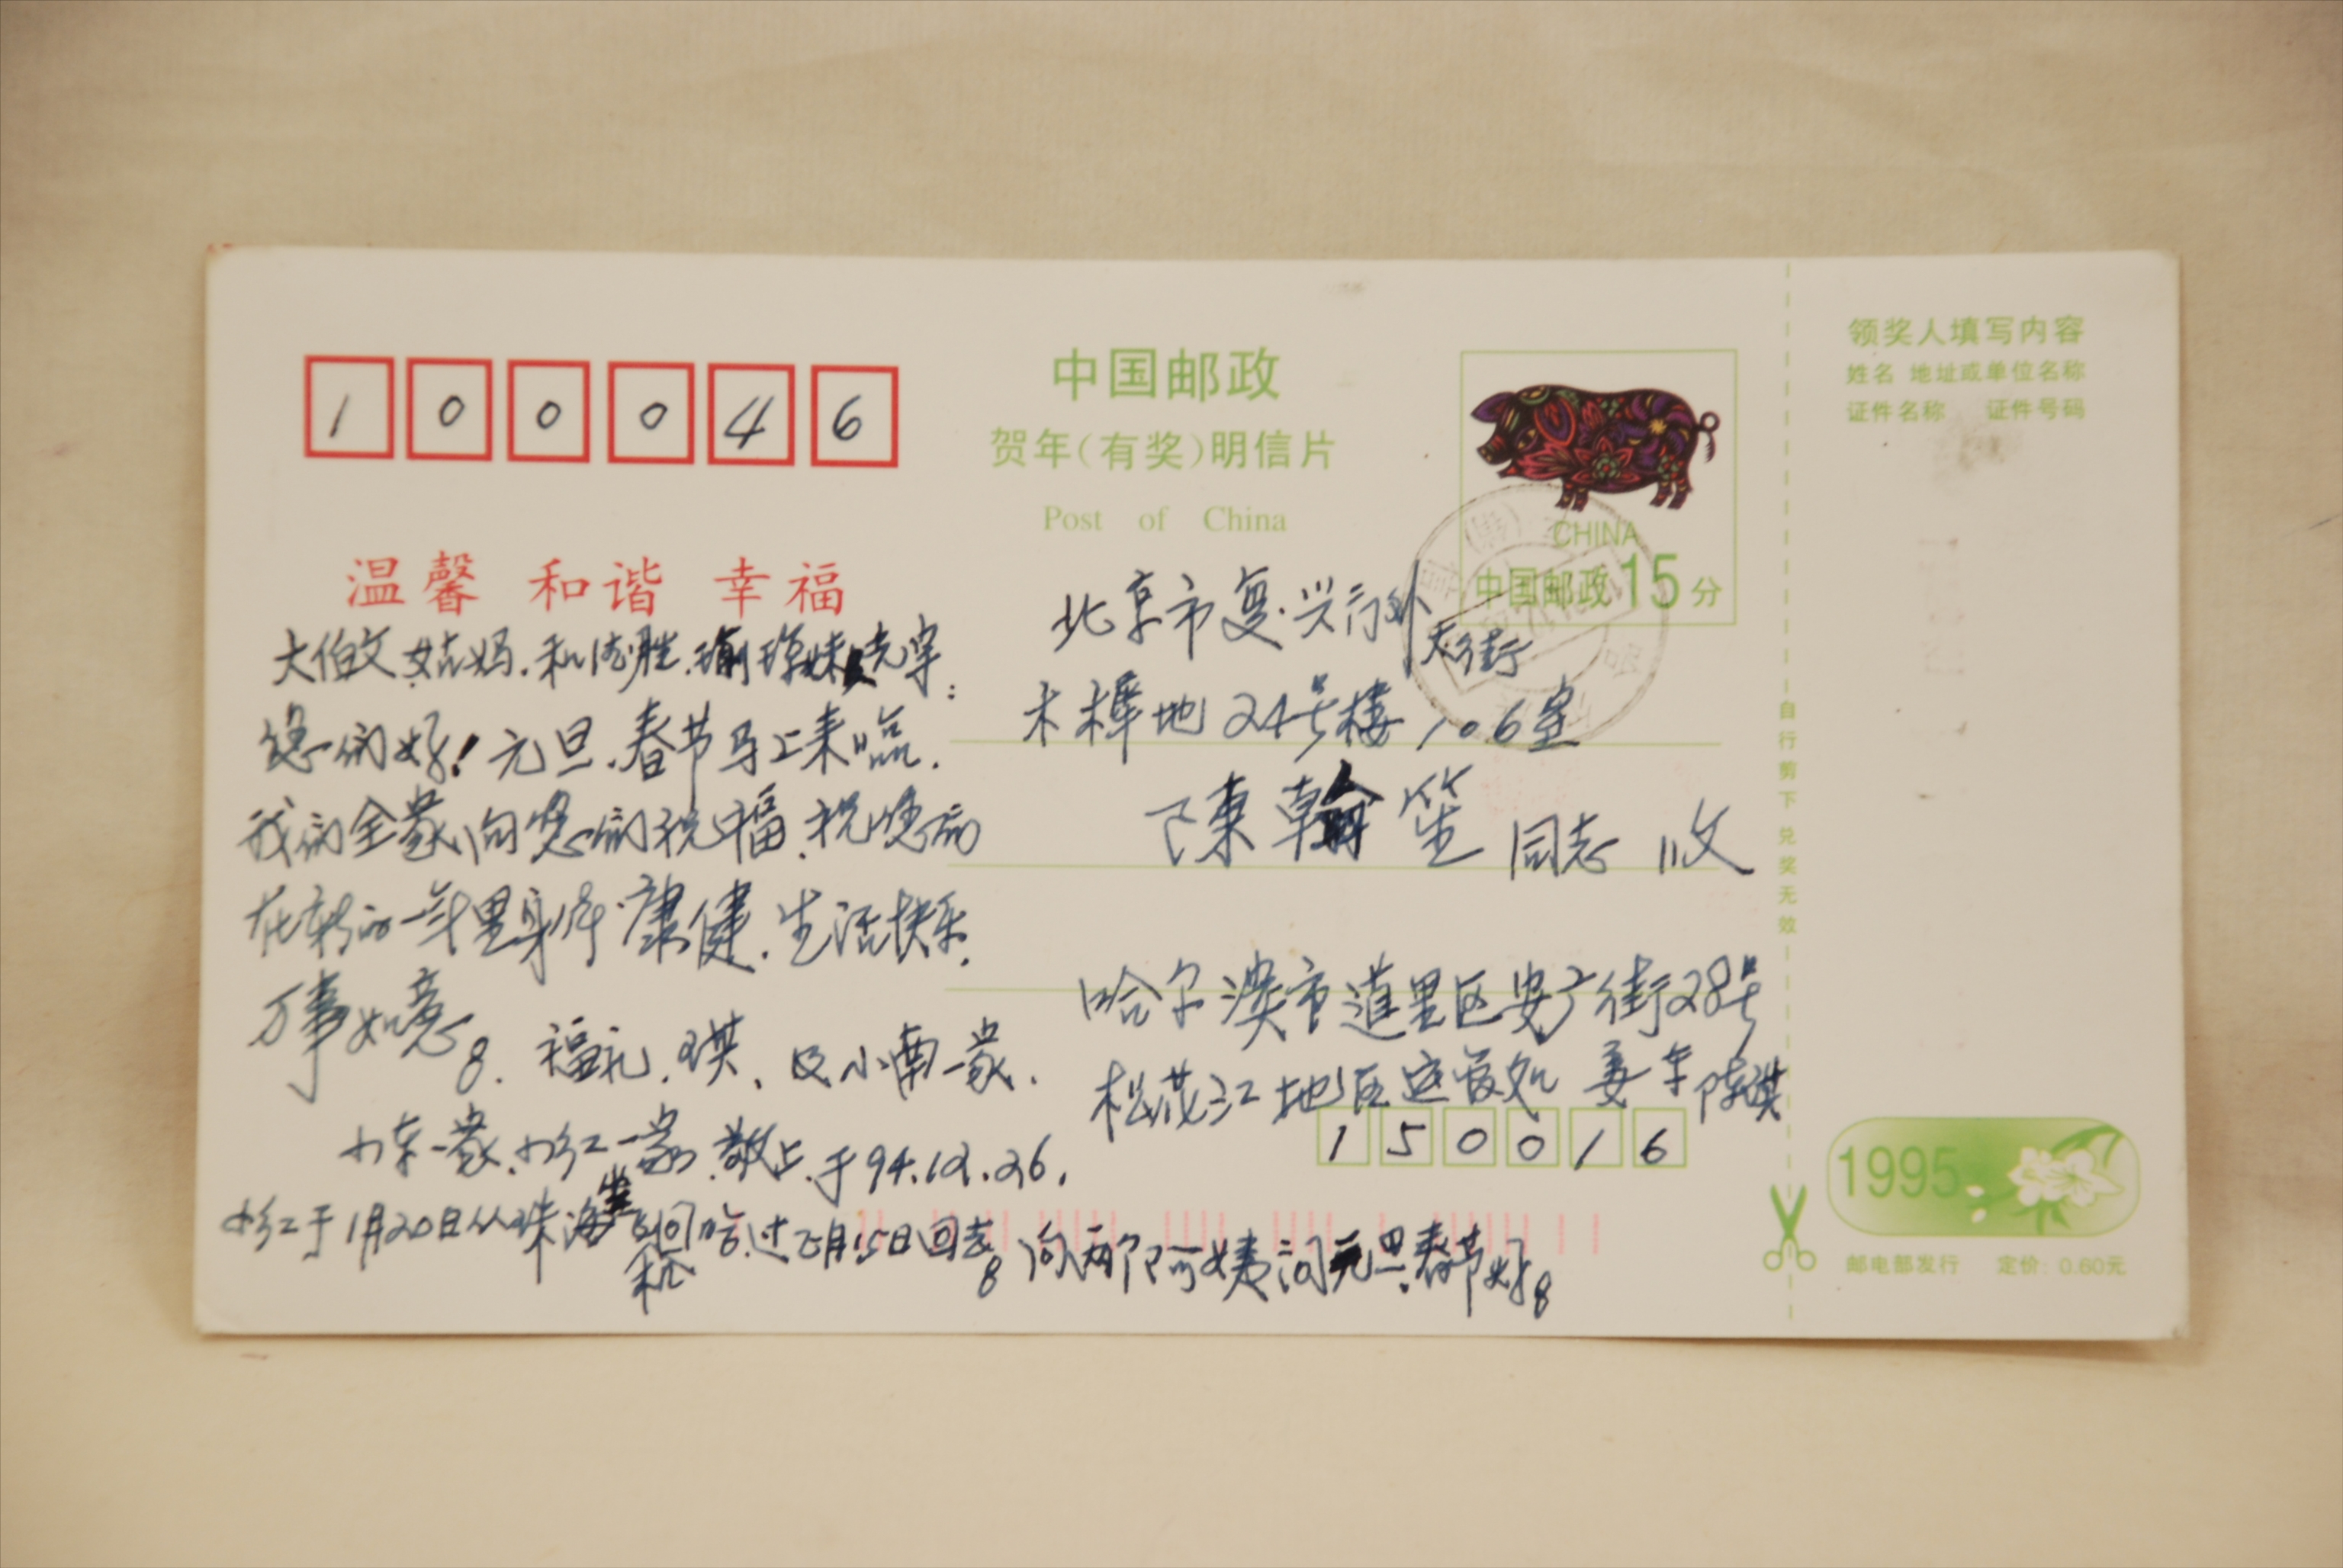 100046
中国邮政
贺年(有奖)明信片
Post of China
CHINA
中国邮政15分
温馨 和谐 幸福
大伯父、姑妈、和
您们好!元旦、春节马上来临.
我们全家向您们祝福、祝您们
在新的一年里身体康健、生活快乐.
万事如意。 福礼、琪、及小南一家.
小东一家、小红一家 敬上.于94.12.26.
小红于1月20日从珠海坐飞机回哈,过正月15日回去。向两个阿姨问元旦、春节好。
北京市复兴门外大街
木樨地24号楼106室
陳翰笙 同志 收
哈尔滨市道里区安广街28号
松花江地区运管处 姜车 陈琪
150016
领奖人填写内容
姓名 地址或单位名称
证件名称 证件号码
自行剪下兑奖无效
1995
邮电部发行 定价:0.60元